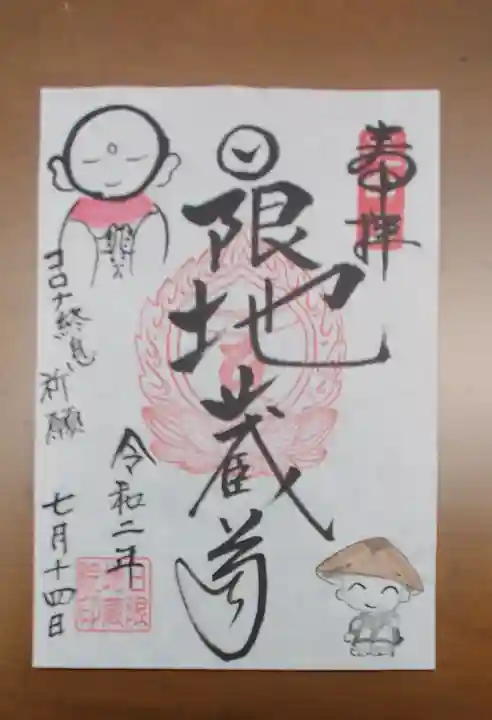 奉拝
日限地蔵尊
コロナ終息祈願
令和二年
七月十四日